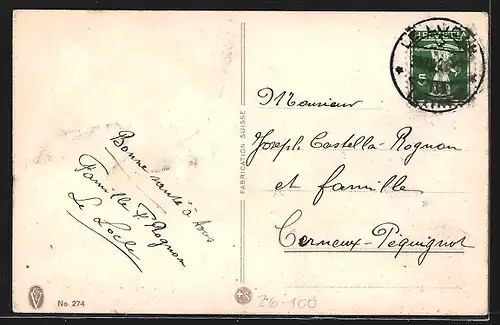 HELVETIA
5
Monsieur
Joseph Castella-Rognon
et famille
Cerneux-Péquignot
Bonne santé à tous
Famille F. Rognon
Le Locle
FABRICATION SUISSE
No. 274
26-100